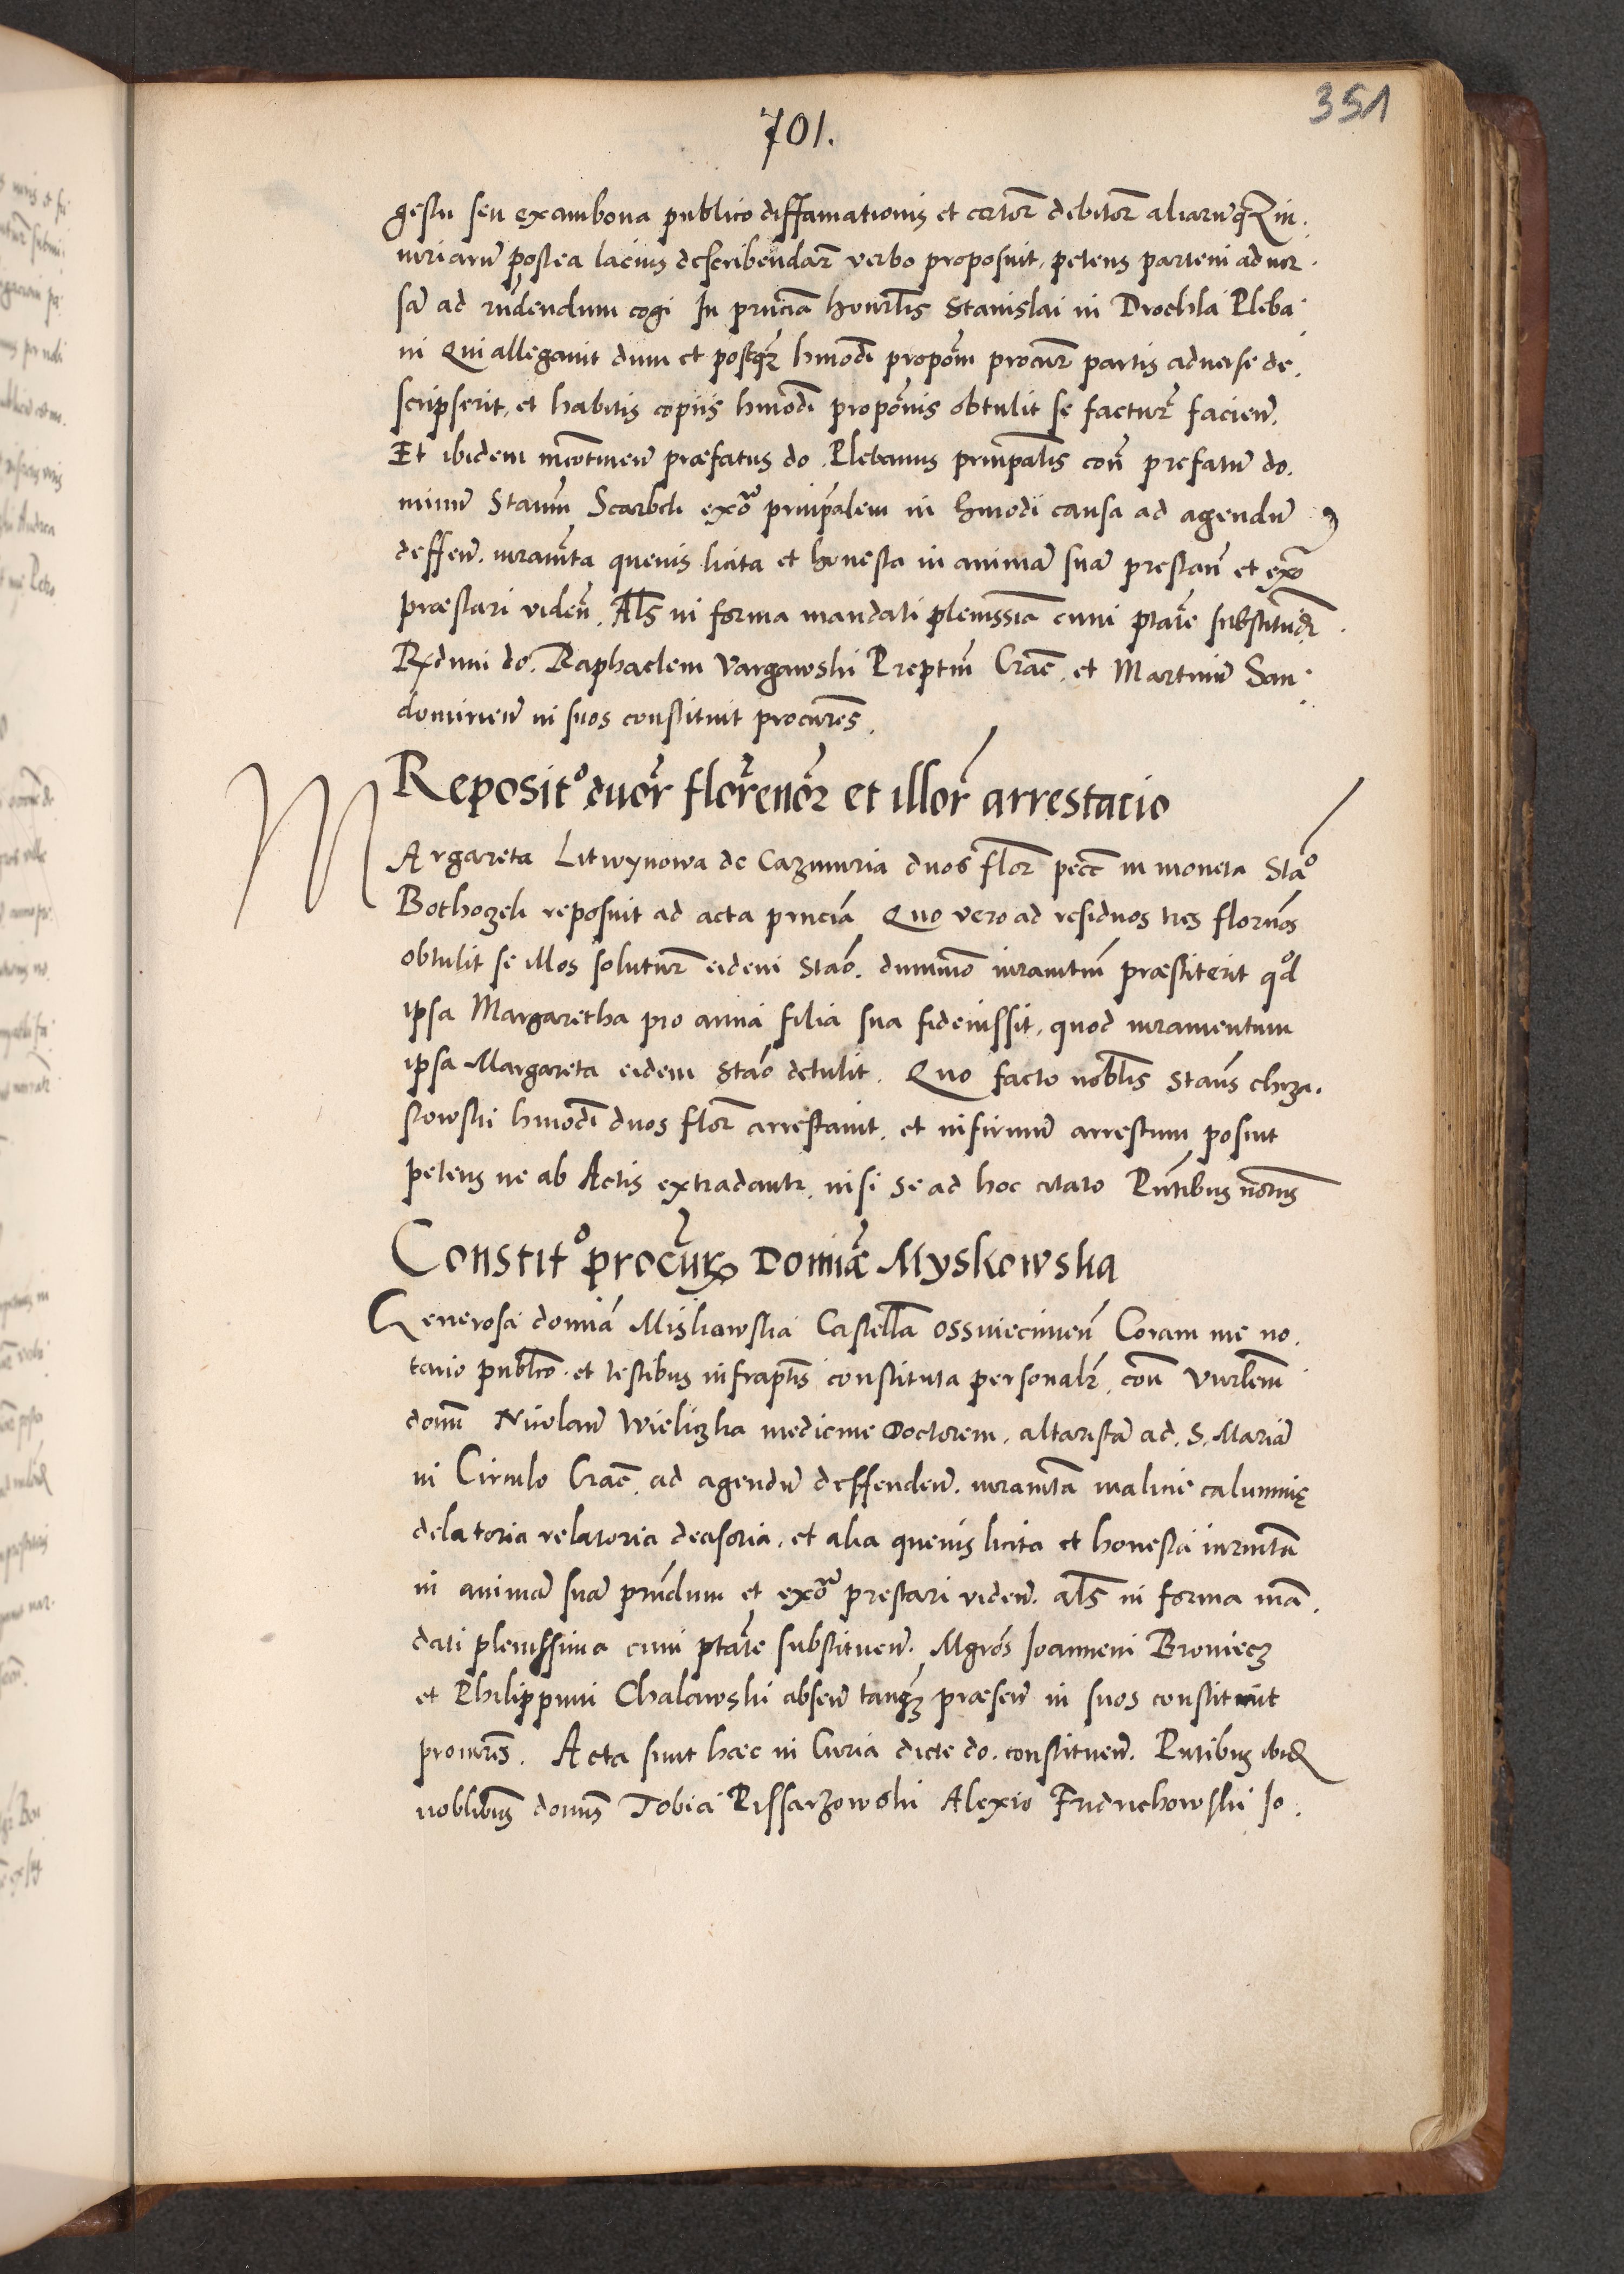 351
701.
gestu seu exambona publico diffamationis et certor̃ debitor̃ aliarūq3 in.
iuriarū postea lacius describendar̃ verbo proposuit, petens partem aduer.
sā ad rñdendum cogi In pr̃nciā honorlis Stanislai in Drochla Pleba
ni Qui allegauit dum et postq3 hmōdi propōem procur̃ partis aduerse de.
scripserit, et habitis copijs hmōdi propōnis obtulit se factur̃ facien̄.
Et ibidem incōtinen̄ præfatus do. Plebanus prinpalis con̄ prefatū do.
minū Stanm̄ Scarbek exōr prinpalem in hmōdi causa ad agendū
deffen̄. iuramta queuis licita et honesta in animā suā prestan̄ et exōr
præstari viden̄. Als in forma mandati plenissīa cum ptāte substituēdi
Rxdum do. Raphaelem Vargawski Preptm̄ Crac̄. et Martinū San
domirien̄ in suos constituit procures̄.
Reposit° duor̃ florenor̃ et illor̃ arrestacio
MArgareta Litwynowa de Cazimiria duos flor̃ pecc̄ in moneta Stāo
Bothozek reposuit ad acta pr̃nciā Quo vero ad residuos tres florēnos
obtulit se illos solutur̃ eidem Stāo. dummō iuramtm̄ præstiterit qd°
ipsa Margaretha pro anna filia sua fideiussit, quod iuramentum
ipsa Margareta eidem Stāo detulit. Quo facto noblis Stan̄s chrza.
stowski hmōdi duos flor̃ arrestauit. et in firmū arrestum posuit
petens ne ab Actis extradantr, nisi se ad hoc citato Pñtibus notus
Constit° procur̃ Domīæ Myskowska
Generosa domīa Miskowska Castellā ossuiecimen̄ Coram me no.
tario publco. et testibus infraptis constituta personalr̃, con̄ Vnrlem
domm Nicolaū Wieliczka medicine Doctorem, altaristā ad. S. Mariā
in Circulo Crac̄. ad agendū deffenden̄. iuramta malicie calumnię
delatoria relatoria decisoria, et alia queuis licita et honesta iurmta
in animā suā prñdum et exōr prestari viden̄. als in forma mā.
dati plenissima cum ptāte substituen̄. Mgros Joannem Broniecz
et Philippum Chalawski absen̄ tanq3 præsen̄ in suos constituit
procures̄. Acta sunt hæc in Curia dicte do. constituen̄. Pñtibus ibid
noblibus domis Tobia Pissarzowski Alexio Fridrichowski Jo.